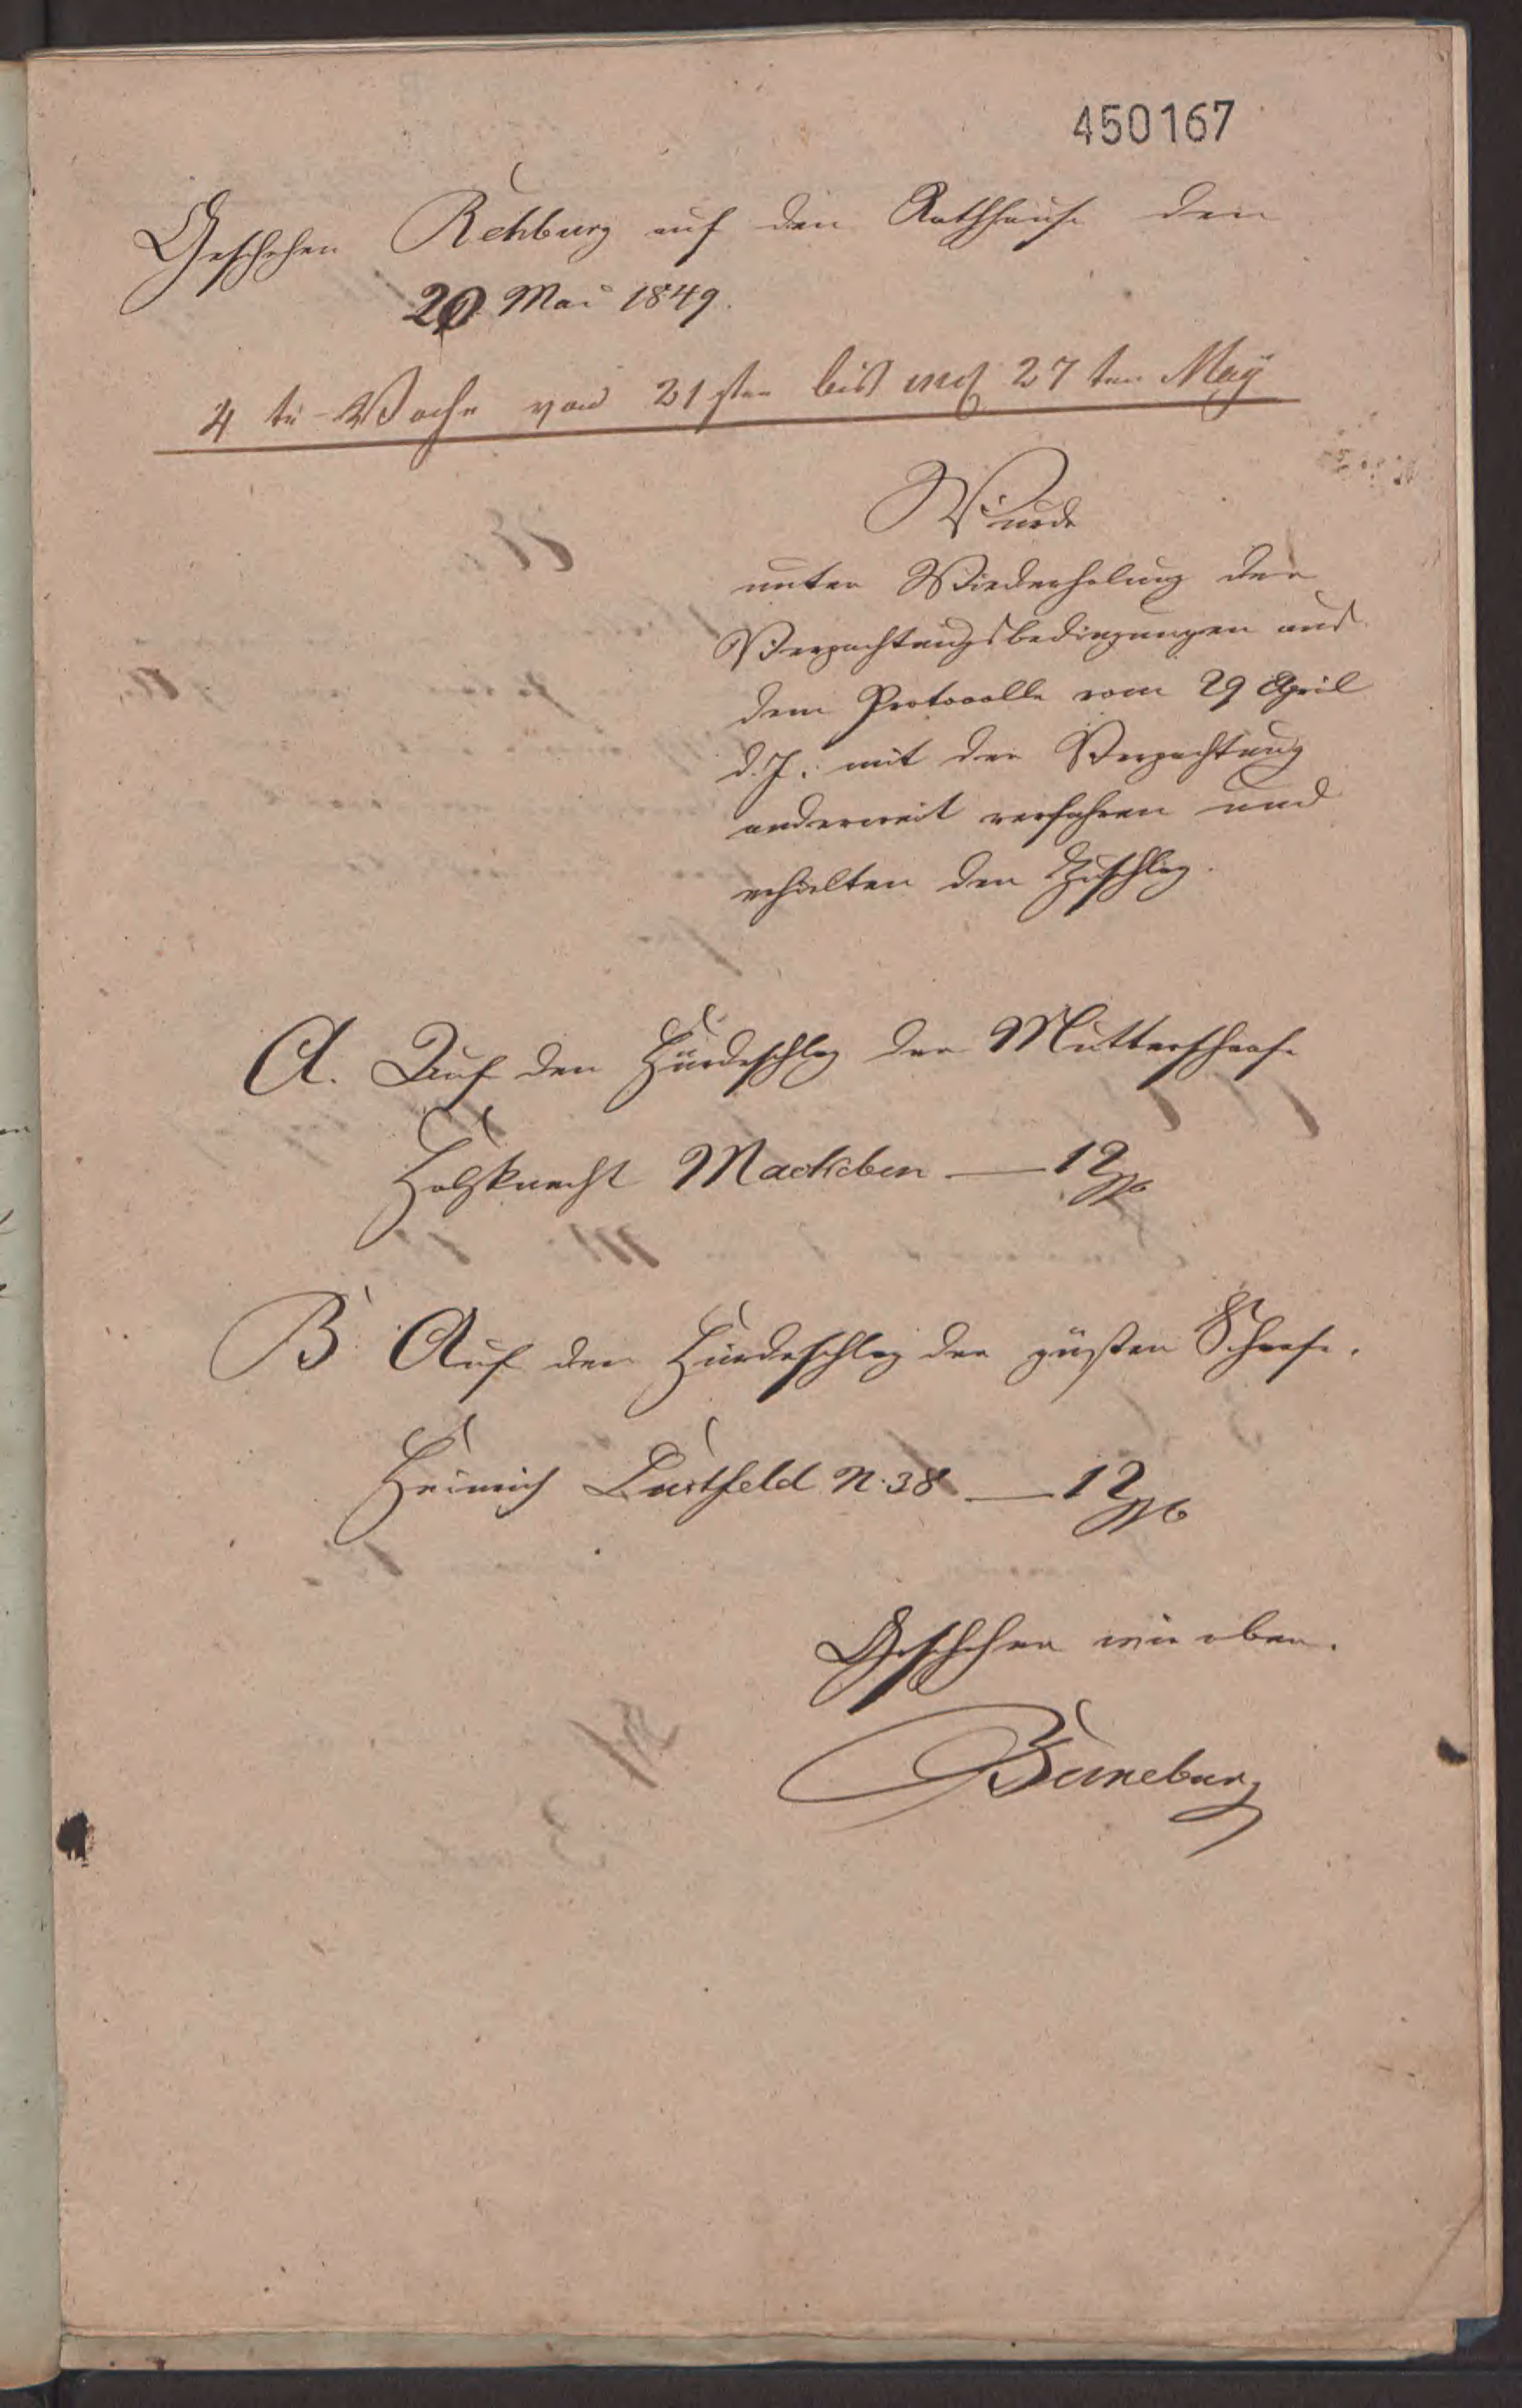 450167
Geschehen Rehburg auf den Rathhause den
20 Mai 1849.
4 te Woche von 21sten bis incl 27ten May
Wurde
unter Wiederholung der
Verpachtungsbedingungen aus
dem Protocolle vom 29 April
d. J. mit der Verpachtung
anderweit verfahren und
erhalten den Zuschlag.
A. Auf den Hürdeschlag der Mutterschaafe
Holzknecht Mackeben — 12
B. Auf den Hürdeschlag der güsten Schaafe.
Heinrich Lustfeld N. 38 — 12
Geschehen wie oben.
Buneburg